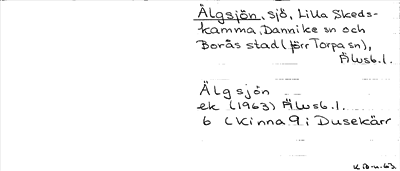 Älgsjön, sjö, Lilla Skeds-
kamma, Dannike sn och
Borås stad (förr Torpa sn),
Älvsb.l.
Älgsjön
ek (1963) Älvsb.l.
6 (Kinna 9 i Dusekärr
KB-n.63